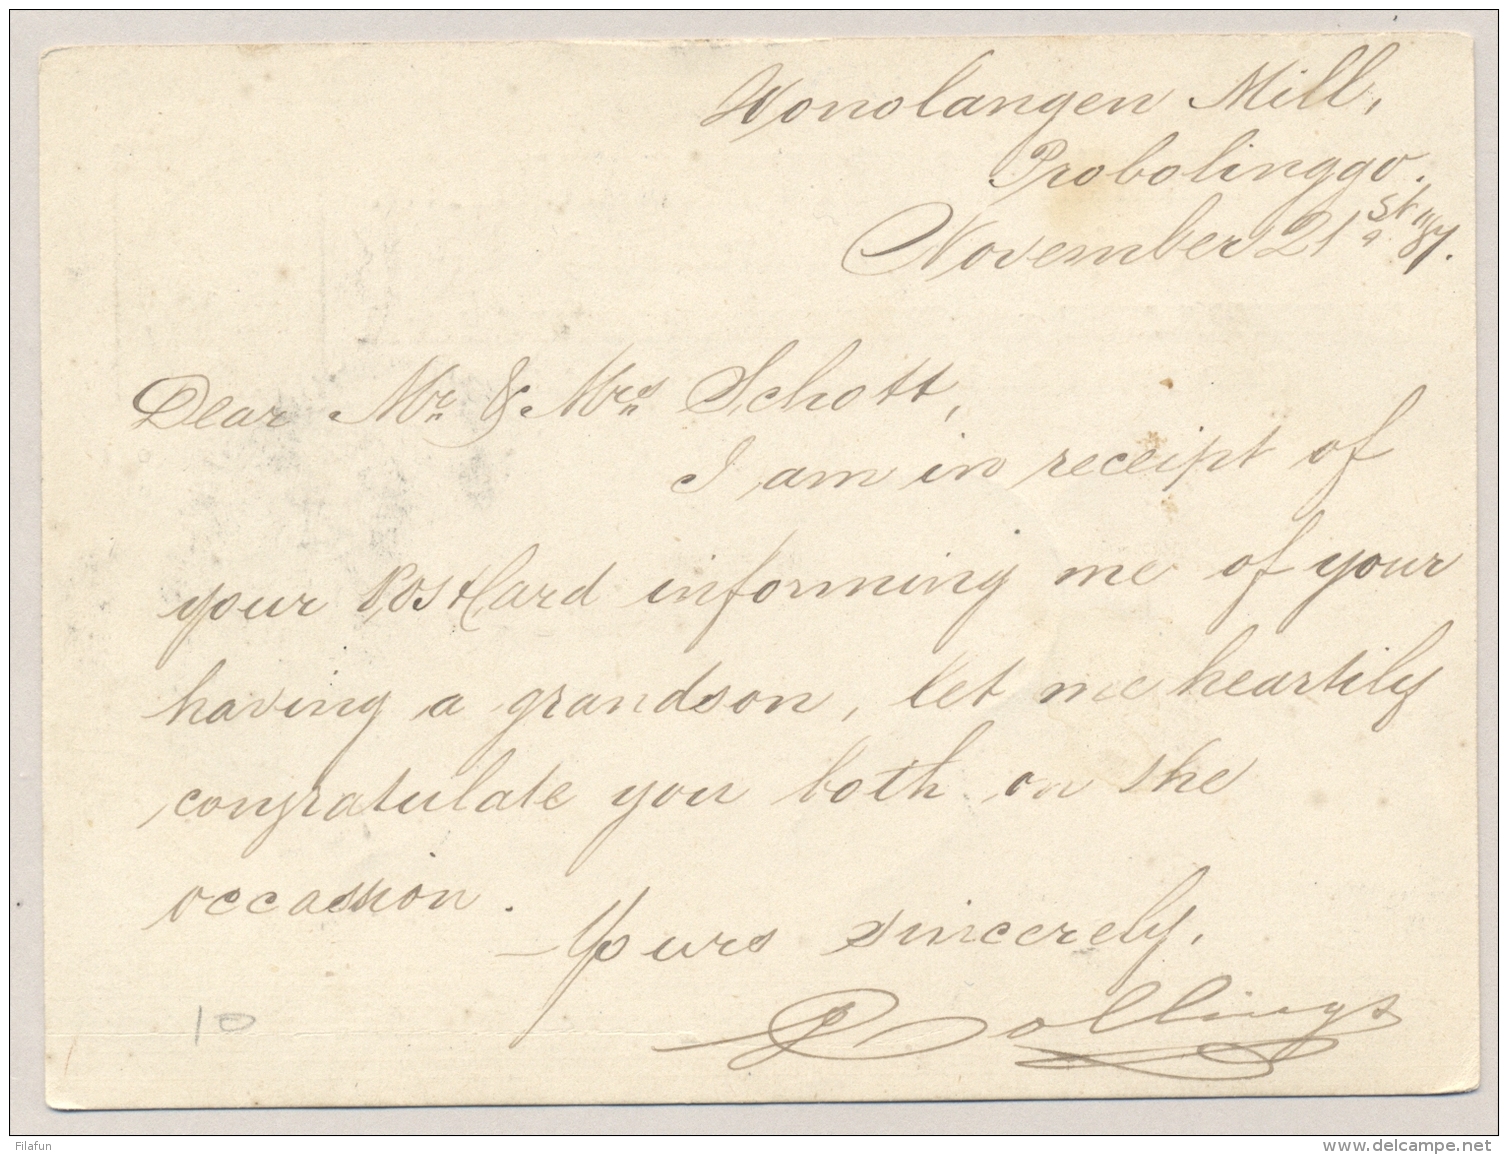 Wonolangen Mill,
Probolinggo.
November 21st "87.
Dear Mr. & Mrs. Schott,
I am in receipt of
your PostCard informing me of your
having a grandson, let me heartily
congratulate you both on the
occassion.
Yours sincerely,
Rollings
10
Filafun
www.delcampe.net